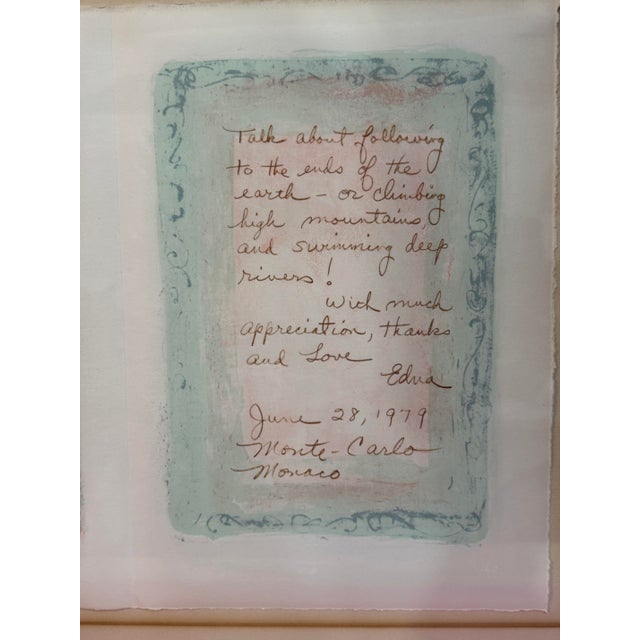 Talk about following
to the ends of the
earth - or climbing
high mountains,
and swimming deep
rivers!
With much
appreciation, thanks
and Love
Edna
June 28, 1979
Monte-Carlo
Monaco